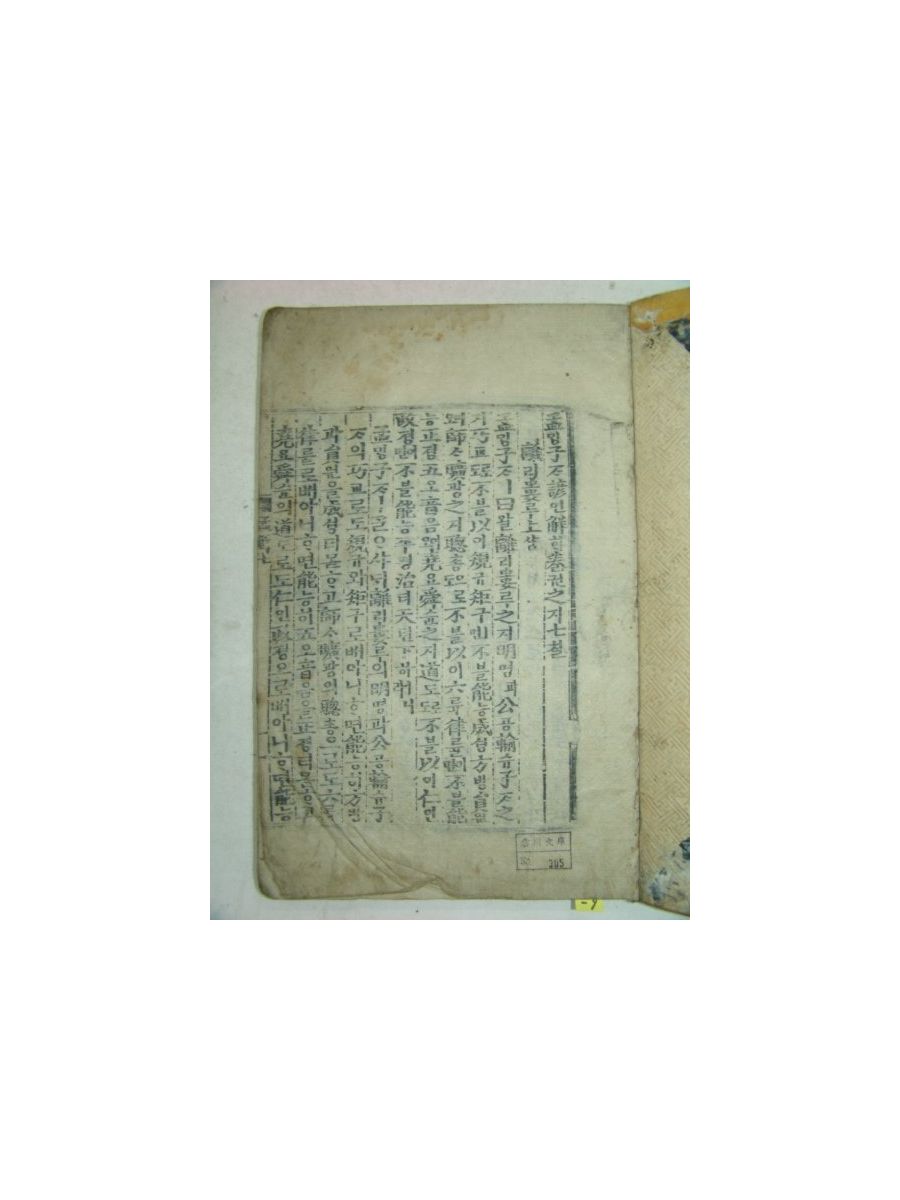 孟밍子ᄌᆞ諺언解ᄒᆡ卷권之지七칠
離리婁루上샹
孟밍子ᄌᆞㅣ曰왈離리婁루之지明명과公공輸슈子ᄌᆞ之
지巧교로도不블以이規규矩구ㅣ면不블能능成셩方방員원
이오師ᄉᆞ曠광之지聰총으로도不블以이六륙律률이면不블能
능正졍五오音음이오堯요舜슌之지道도로도不블以이仁인
政졍이면不블能능平평治티天텬下하ㅣ니라
孟밍子ᄌᆞㅣᄀᆞᆯᄋᆞ샤ᄃᆡ離리婁루의明명과公공輸슈子
ᄌᆞ의巧교로도規규와矩구로ᄡᅥ아니ᄒᆞ면能능히方방
과員원을成셩티몯ᄒᆞ고師ᄉᆞ曠광의聰총으로도六륙
律률로ᄡᅥ아니ᄒᆞ면能능히五오音음을正졍티몯ᄒᆞ고
堯요舜슌의道도로도仁인政졍으로ᄡᅥ아니ᄒᆞ면能능
文庫
No. 395
-9